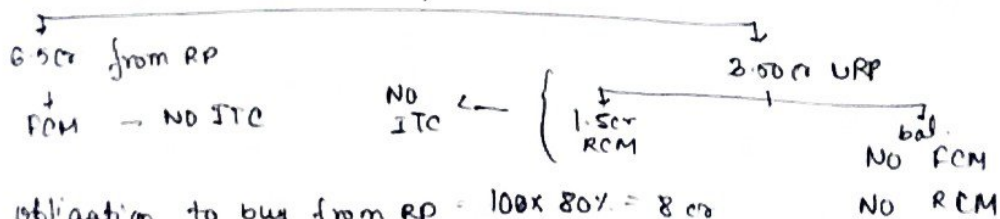 6.5cr from RP
3.50cr URP
FCM → NO ITC
NO ITC ←
1.5cr RCM
bal.
NO FCM
NO RCM
obligation to buy from RP = 100x 80% = 8 cr